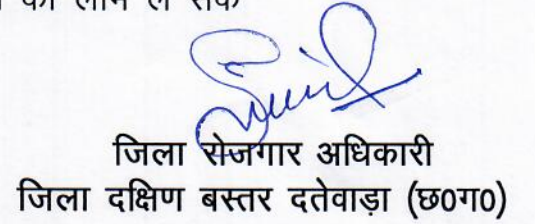 का लाभ ले सकें
जिला रोजगार अधिकारी
जिला दक्षिण बस्तर दतेवाड़ा (छ0ग0)